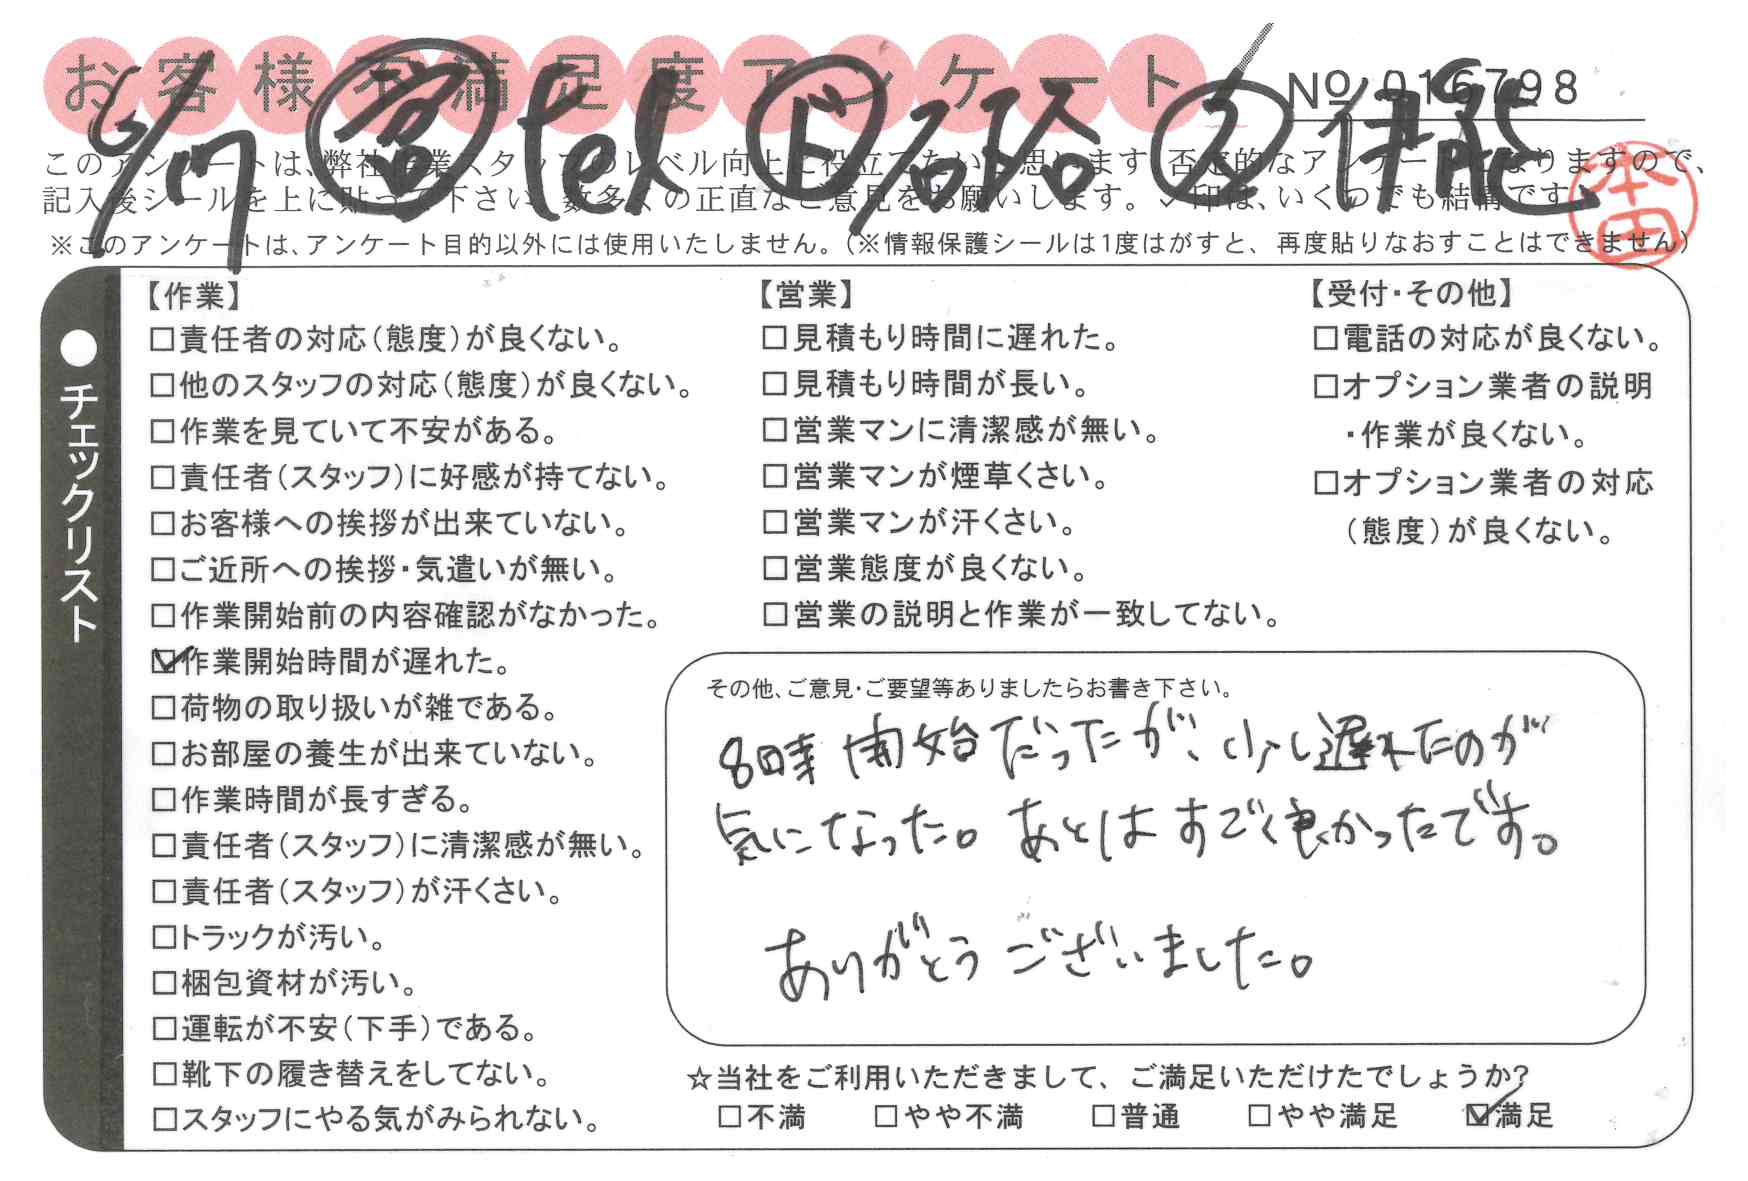 お客様不満足度アンケート
No 016798
6/17 営 tel ド 石路 2 伊能
このアンケートは、弊社作業スタッフのレベル向上に役立てたいと思います。否定的なアンケートとなりますので、
記入後シールを上に貼って下さい。数多くの正直なご意見をお願いします。✓印は、いくつでも結構です。
本田
※このアンケートは、アンケート目的以外には使用いたしません。(※情報保護シールは1度はがすと、再度貼りなおすことはできません)
●チェックリスト
【作業】
□責任者の対応(態度)が良くない。
□他のスタッフの対応(態度)が良くない。
□作業を見ていて不安がある。
□責任者(スタッフ)に好感が持てない。
□お客様への挨拶が出来ていない。
□ご近所への挨拶・気遣いが無い。
□作業開始前の内容確認がなかった。
☑作業開始時間が遅れた。
□荷物の取り扱いが雑である。
□お部屋の養生が出来ていない。
□作業時間が長すぎる。
□責任者(スタッフ)に清潔感が無い。
□責任者(スタッフ)が汗くさい。
□トラックが汚い。
□梱包資材が汚い。
□運転が不安(下手)である。
□靴下の履き替えをしてない。
□スタッフにやる気がみられない。
【営業】
□見積もり時間に遅れた。
□見積もり時間が長い。
□営業マンに清潔感が無い。
□営業マンが煙草くさい。
□営業マンが汗くさい。
□営業態度が良くない。
□営業の説明と作業が一致してない。
【受付・その他】
□電話の対応が良くない。
□オプション業者の説明
・作業が良くない。
□オプション業者の対応
(態度)が良くない。
その他、ご意見・ご要望等ありましたらお書き下さい。
8時開始だったが、少し遅れたのが
気になった。あとはすごく良かったです。
ありがとうございました。
☆当社をご利用いただきまして、ご満足いただけたでしょうか?
□不満 □やや不満 □普通 □やや満足 ☑満足